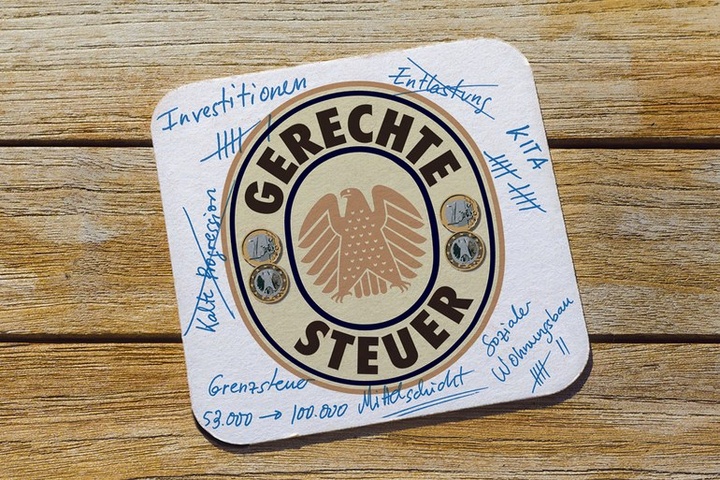 Investitionen
Entlastung
KITA
GERECHTE
STEUER
Kalte Progression
Sozialer
Wohnungsbau
Grenzsteuer
53.000 → 100.000 Mittelschicht